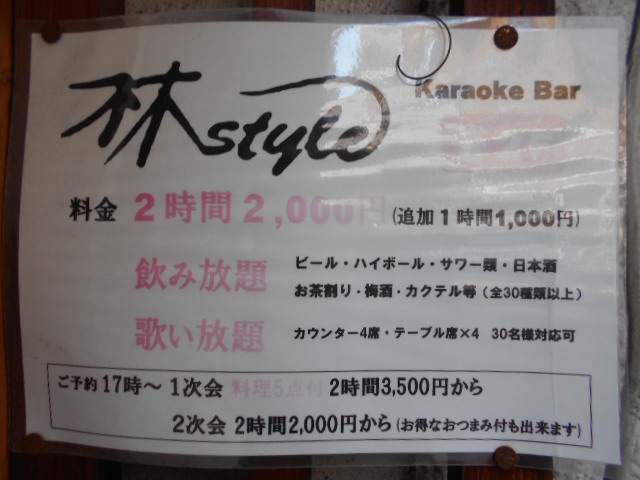 林style
Karaoke Bar
料金 2時間2,000円 (追加1時間1,000円)
飲み放題
ビール・ハイボール・サワー類・日本酒
お茶割り・梅酒・カクテル等(全30種類以上)
歌い放題
カウンター4席・テーブル席×4 30名様対応可
ご予約 17時〜 1次会 料理5点付 2時間3,500円から
2次会 2時間2,000円から(お得なおつまみ付も出来ます)